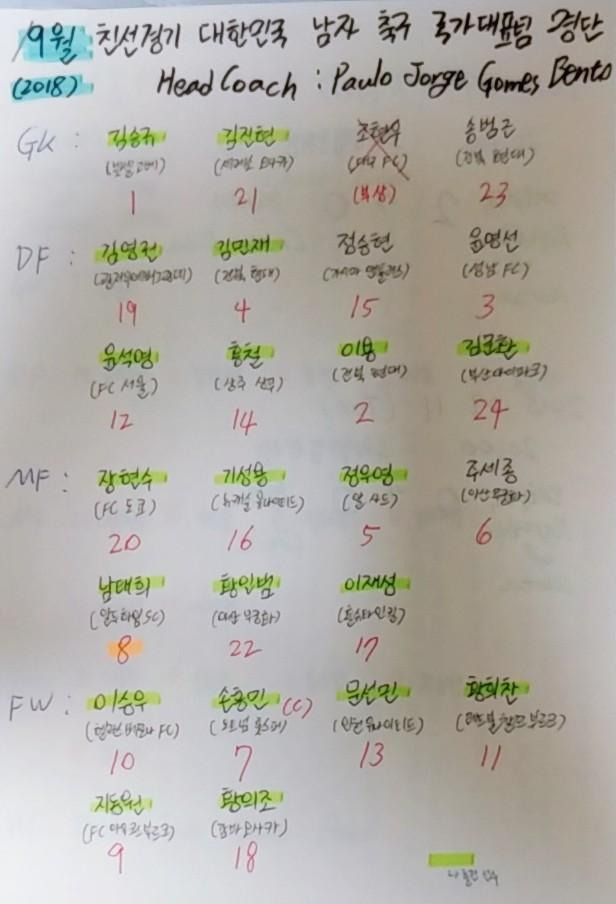 9월 친선경기 대한민국 남자 축구 국가대표팀 명단
(2018) Head Coach : Paulo Jorge Gomes Bento
GK : 김승규 김진현 조현우 송범근
(빗셀고베) (세레소 오사카) (대구 FC) (전북 현대)
1 21 (부상) 23
DF : 김영권 김민재 정승현 윤영선
(광저우에버그란데) (전북 현대) (가시마 앤틀러스) (성남 FC)
19 4 15 3
윤석영 홍철 이용 김문환
(FC 서울) (상주 상무) (전북 현대) (부산아이파크)
12 14 2 24
MF : 장현수 기성용 정우영 주세종
(FC 도쿄) (뉴캐슬 유나이티드) (알 사드) (아산 무궁화)
20 16 5 6
남태희 황인범 이재성
(알두하일SC) (아산 무궁화) (홀슈타인킬)
8 22 17
FW : 이승우 손흥민 (C) 문선민 황희찬
(헬라스 베로나 FC) (토트넘 홋스퍼) (인천 유나이티드)
10 7 13 11
지동원 황의조
(FC 아우크스부르크) (감바 오사카)
9 18